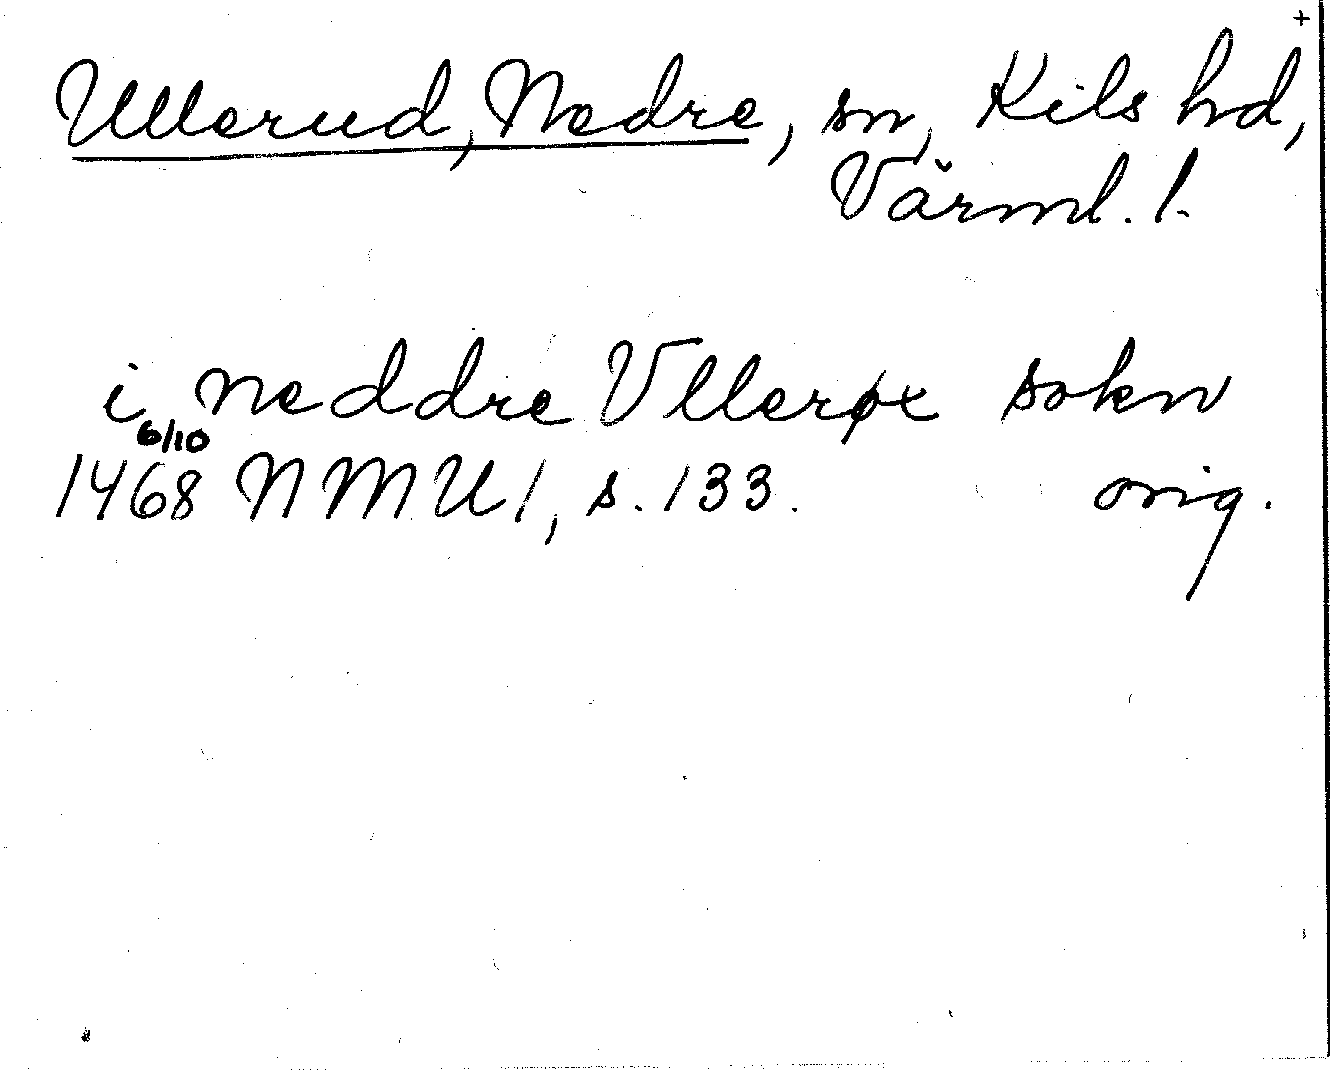 +
Ullerud, Nedre, sn, Kils hd,
Värml. l.
i neddre Vllerøe sokn
6/10
1468 NMU 1, s. 133. orig.